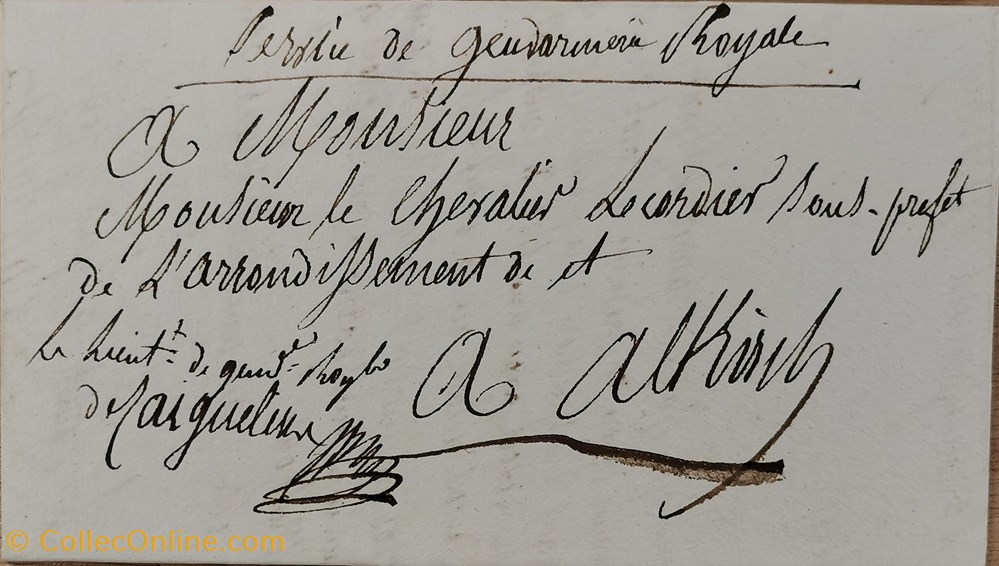 Service de Gendarmerie Royale
A Monsieur
Monsieur le Chevalier Lecordier Sous-prefet
de L'arrondissement de et
Le Lieut.t de gend.rie Royle
de
A Altkirch
© CollecOnline.com